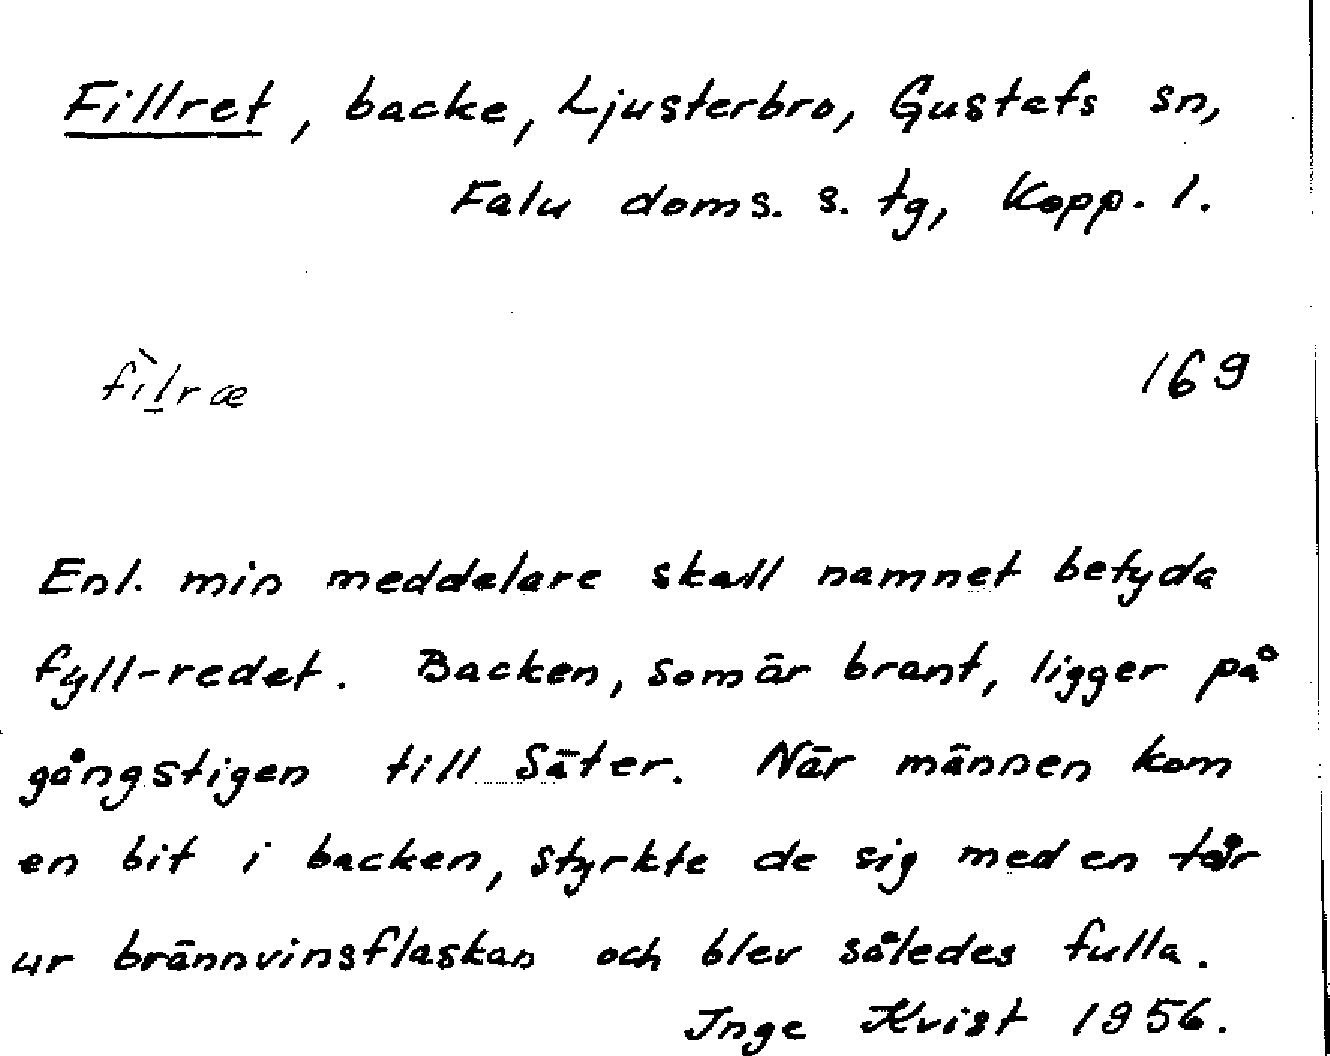 Fillret, backe, Ljusterbro, Gustafs sn,
Falu doms. s. tg, Kopp. l.
fìl̠ræ 169
Enl. min meddelare skall namnet betyda
fyll-redet. Backen, som är brant, ligger på
gångstigen till Säter. När männen kom
en bit i backen, styrkte de sig med en tår
ur brännvinsflaskan och blev således fulla.
Inge Kvist 1956.